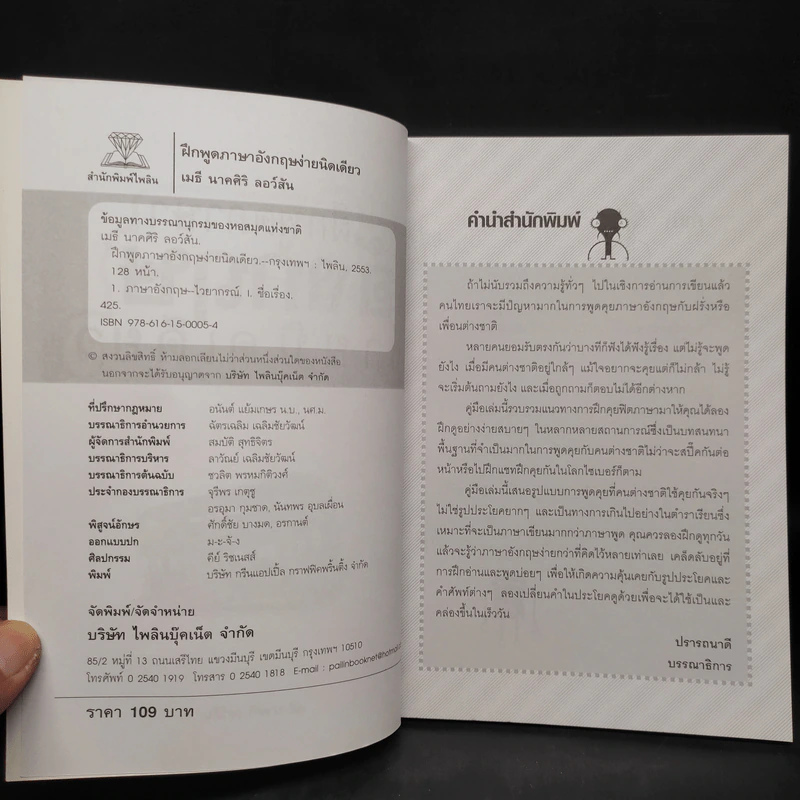 สำนักพิมพ์ไพลิน
ฝึกพูดภาษาอังกฤษง่ายนิดเดียว
เมธี นาคศิริ ลอว์สัน
ข้อมูลทางบรรณานุกรมของหอสมุดแห่งชาติ
เมธี นาคศิริ ลอว์สัน.
ฝึกพูดภาษาอังกฤษง่ายนิดเดียว.--กรุงเทพฯ : ไพลิน, 2553.
128 หน้า.
1. ภาษาอังกฤษ--ไวยากรณ์. I. ชื่อเรื่อง.
425.
ISBN 978-616-15-0005-4
© สงวนลิขสิทธิ์ ห้ามลอกเลียนไม่ว่าส่วนหนึ่งส่วนใดของหนังสือ
นอกจากจะได้รับอนุญาตจาก บริษัท ไพลินบุ๊คเน็ต จำกัด
ที่ปรึกษากฎหมาย อนันต์ แย้มเกษร น.บ., นศ.ม.
บรรณาธิการอำนวยการ ฉัตรเฉลิม เฉลิมชัยวัฒน์
ผู้จัดการสำนักพิมพ์ สมบัติ สุทธิจิตร
บรรณาธิการบริหาร ลาวัณย์ เฉลิมชัยวัฒน์
บรรณาธิการต้นฉบับ ชวลิต พรหมกิติวงศ์
ประจำกองบรรณาธิการ จุรีพร เกตุชู
อรอุมา กุมชาด, นันทพร อุบลเผื่อน
พิสูจน์อักษร ศักดิ์ชัย บางมด, อรกานต์
ออกแบบปก ม-ะ-จั-ง
ศิลปกรรม คีย์ ริชเนสส์
พิมพ์ บริษัท กรีนแอปเปิ้ล กราฟฟิคพริ้นติ้ง จำกัด
จัดพิมพ์/จัดจำหน่าย
บริษัท ไพลินบุ๊คเน็ต จำกัด
85/2 หมู่ที่ 13 ถนนเสรีไทย แขวงมีนบุรี เขตมีนบุรี กรุงเทพฯ 10510
โทรศัพท์ 0 2540 1919 โทรสาร 0 2540 1818 E-mail : pailinbooknet@hotmail
ราคา 109 บาท
คำนำสำนักพิมพ์
ถ้าไม่นับรวมถึงความรู้ทั่วๆ ไปในเชิงการอ่านการเขียนแล้ว
คนไทยเราจะมีปัญหามากในการพูดคุยภาษาอังกฤษกับฝรั่งหรือ
เพื่อนต่างชาติ
หลายคนยอมรับตรงกันว่าบางทีก็ฟังได้ฟังรู้เรื่อง แต่ไม่รู้จะพูด
ยังไง เมื่อมีคนต่างชาติอยู่ใกล้ๆ แม้ใจอยากจะคุยแต่ก็ไม่กล้า ไม่รู้
จะเริ่มต้นถามยังไง และเมื่อถูกถามก็ตอบไม่ได้อีกต่างหาก
คู่มือเล่มนี้รวบรวมแนวทางการฝึกคุยฟิตภาษามาให้คุณได้ลอง
ฝึกดูอย่างง่ายสบายๆ ในหลากหลายสถานการณ์ซึ่งเป็นบทสนทนา
พื้นฐานที่จำเป็นมากในการพูดคุยกับคนต่างชาติไม่ว่าจะสปี๊คกันต่อ
หน้าหรือไปฝึกแชทฝึกคุยกันในโลกไซเบอร์ก็ตาม
คู่มือเล่มนี้เสนอรูปแบบการพูดคุยที่คนต่างชาติใช้คุยกันจริงๆ
ไม่ใช่รูปประโยคยากๆ และเป็นทางการเกินไปอย่างในตำราเรียนซึ่ง
เหมาะที่จะเป็นภาษาเขียนมากกว่าภาษาพูด คุณควรลองฝึกดูทุกวัน
แล้วจะรู้ว่าภาษาอังกฤษง่ายกว่าที่คิดไว้หลายเท่าเลย เคล็ดลับอยู่ที่
การฝึกอ่านและพูดบ่อยๆ เพื่อให้เกิดความคุ้นเคยกับรูปประโยคและ
คำศัพท์ต่างๆ ลองเปลี่ยนคำในประโยคดูด้วยเพื่อจะได้ใช้เป็นและ
คล่องขึ้นในเร็ววัน
ปรารถนาดี
บรรณาธิการ